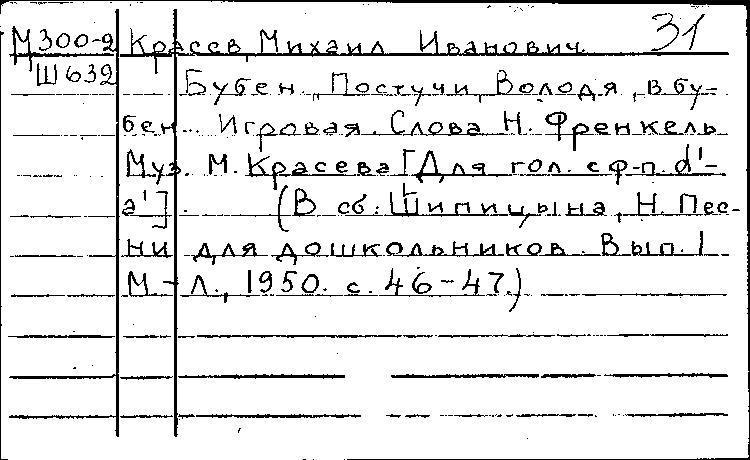 М300-2 Красев, Михаил Иванович 31
Ш632 Бубен., Постучи, Володя, в бу-
бен... Игровая. Слова Н. Френкель
Муз. М. Красева [Для гол. с ф-п. d'-
a']. (В сб: Шипицына, Н. Пес-
ни для дошкольников. Вып. 1
М-Л., 1950. с. 46-47.)